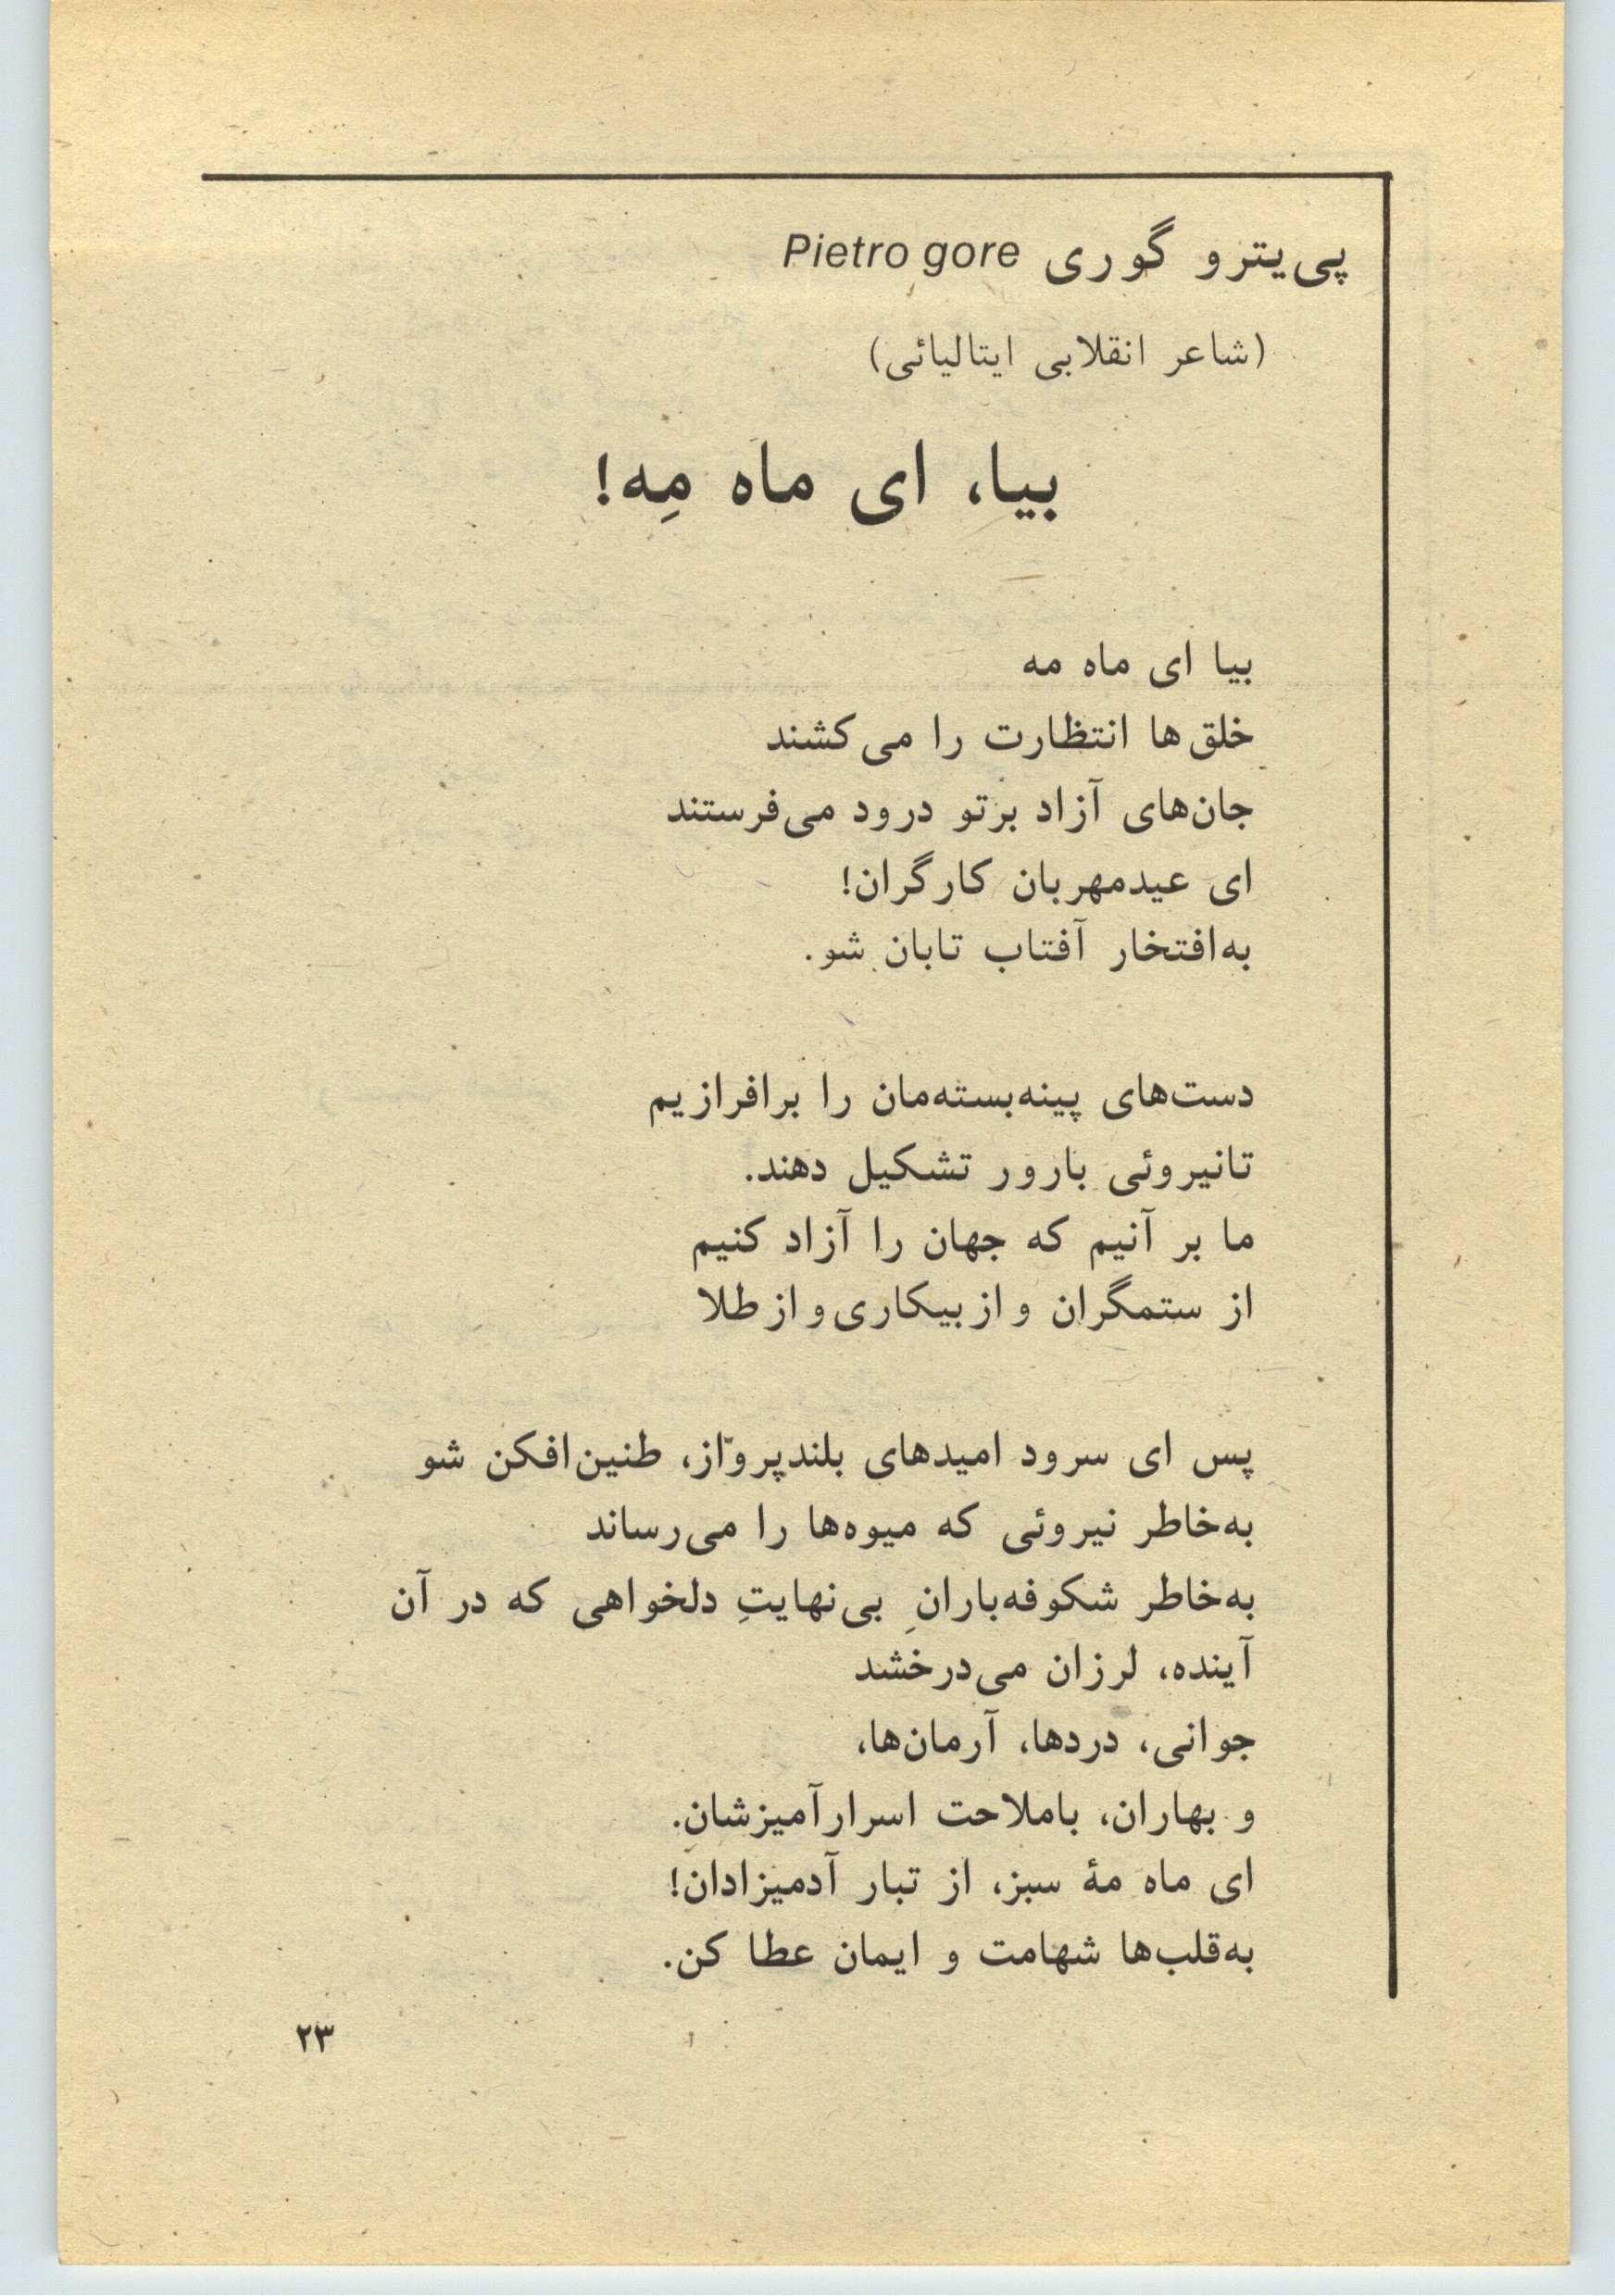 پی‌یترو گوری Pietro gore
(شاعر انقلابی ایتالیائی)
بیا، ای ماه مِه!
بیا ای ماه مه
خلق‌ها انتظارت را می‌کشند
جان‌های آزاد برتو درود می‌فرستند
ای عیدمهربان کارگران!
به‌افتخار آفتاب تابان شو.
دست‌های پینه‌بسته‌مان را برافرازیم
تانیروئی بارور تشکیل دهند.
ما بر آنیم که جهان را آزاد کنیم
از ستمگران و از بیکاری و از طلا
پس ای سرود امیدهای بلندپرواز، طنین‌افکن شو
به‌خاطر نیروئی که میوه‌ها را می‌رساند
به‌خاطر شکوفه‌بارانِ بی‌نهایتِ دلخواهی که در آن
آینده، لرزان می‌درخشد
جوانی، دردها، آرمان‌ها،
و بهاران، باملاحت اسرارآمیزشان.
ای ماه مهٔ سبز، از تبار آدمیزادان!
به‌قلب‌ها شهامت و ایمان عطا کن.
۲۳